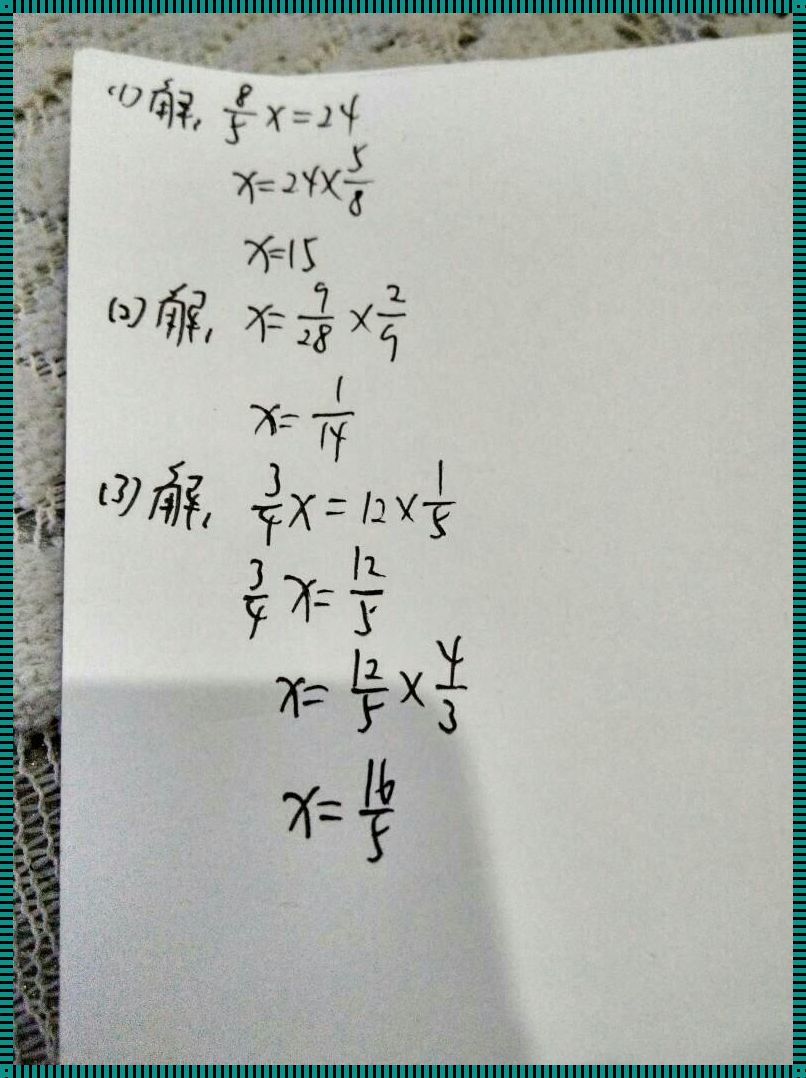 (1)解, 8/5 x=24
x=24×5/8
x=15
(2)解, x=9/28×2/9
x=1/14
(3)解, 3/4 x=12×1/5
3/4 x=12/5
x=12/5×4/3
x=16/5